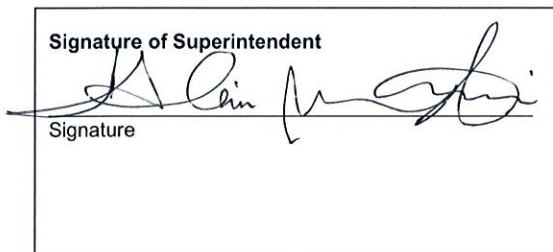 Signature of Superintendent
Signature